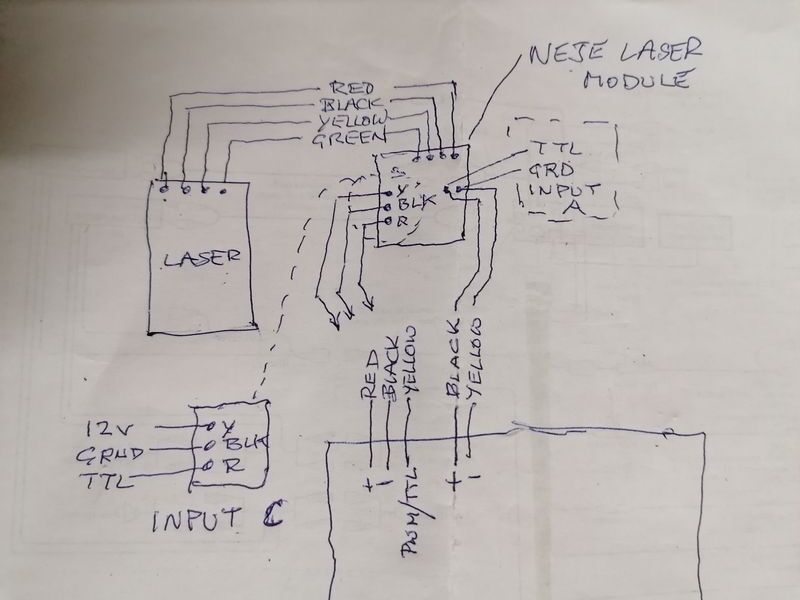 NEJE LASER
MODULE
RED
BLACK
YELLOW
GREEN
TTL
GRD
INPUT
A
Y
BLK
R
LASER
RED
BLACK
YELLOW
BLACK
YELLOW
12V
GRND
TTL
Y
BLK
R
INPUT C
+
-
PWM/TTL
+
-